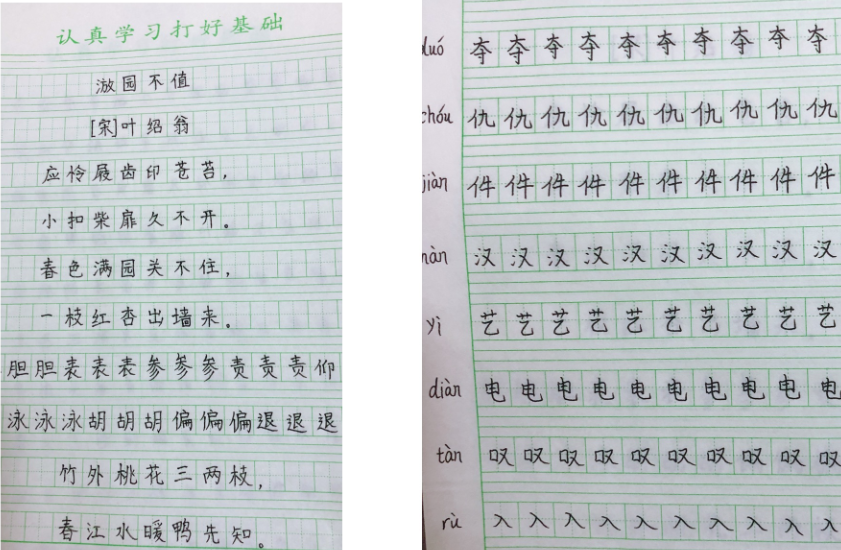 认真学习打好基础
游园不值
[宋]叶绍翁
应怜屐齿印苍苔,
小扣柴扉久不开。
春色满园关不住,
一枝红杏出墙来。
胆胆表表表参参参责责责仰
泳泳泳胡胡胡偏偏偏退退退
竹外桃花三两枝,
春江水暖鸭先知。
duó 夺夺夺夺夺夺夺夺夺夺
chóu 仇仇仇仇仇仇仇仇仇仇
jiàn 件件件件件件件件件件
hàn 汉汉汉汉汉汉汉汉汉汉
yì 艺艺艺艺艺艺艺艺艺艺
diàn 电电电电电电电电电电
tàn 叹叹叹叹叹叹叹叹叹叹
rù 入入入入入入入入入入